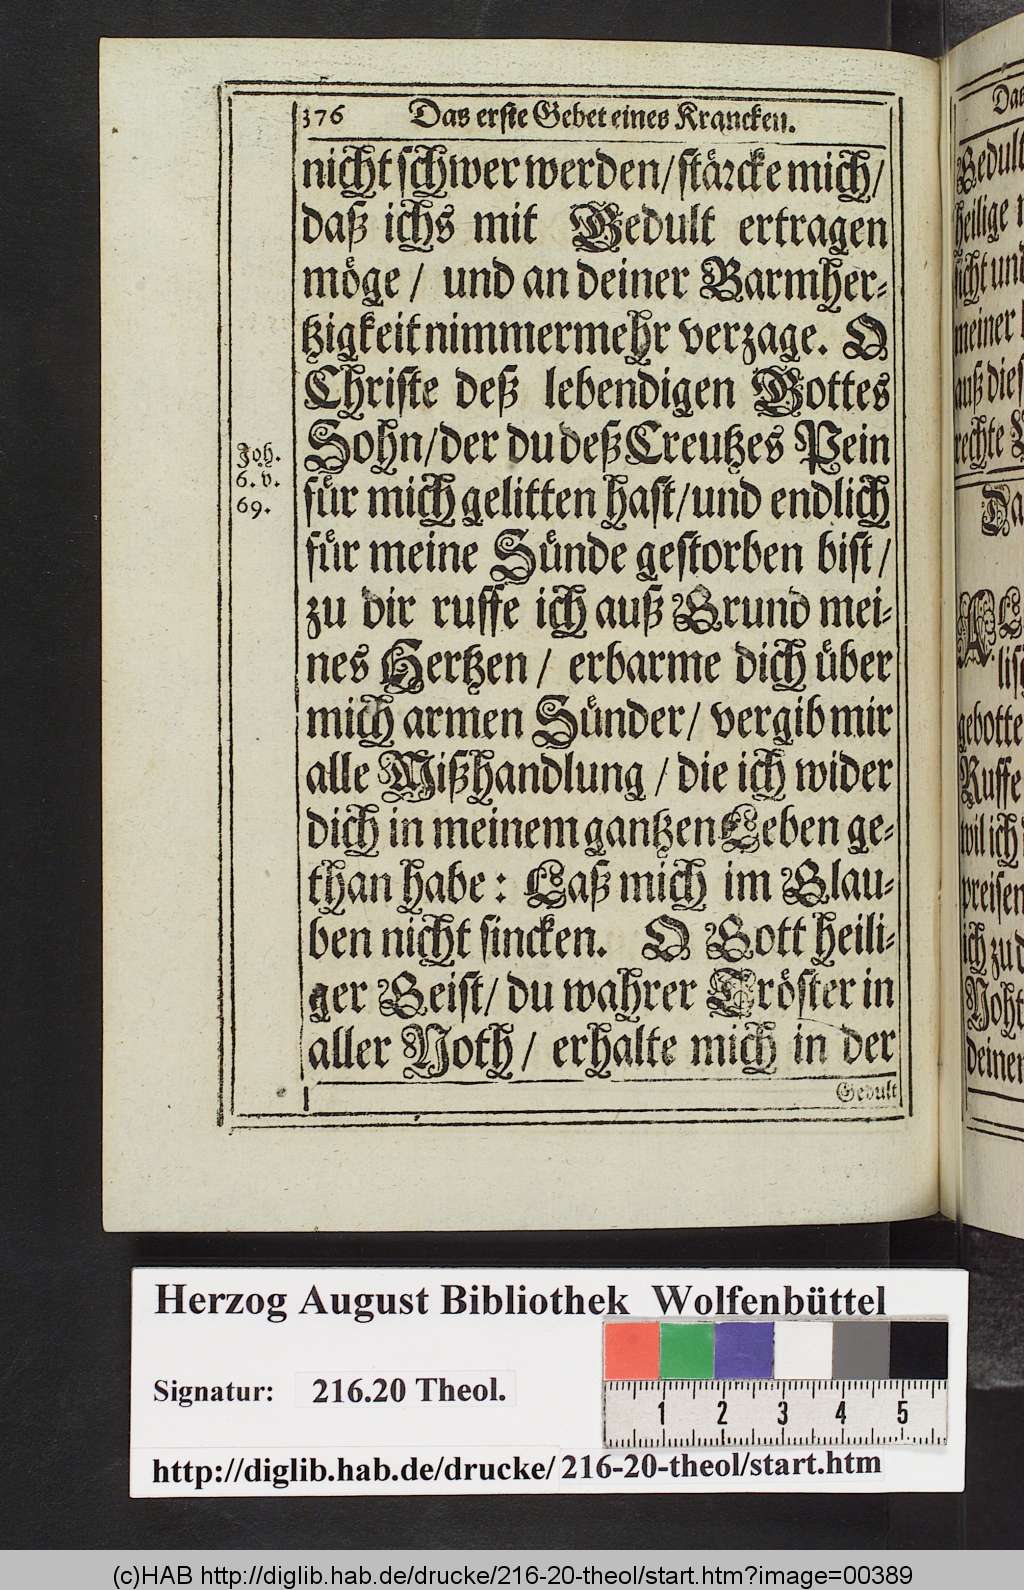 376 Das erste Gebet eines Krancken.
nicht schwer werden/ stärcke mich/
daß ichs mit Gedult ertragen
möge/ und an deiner Barmher-
tzigkeit nimmermehr verzage. O
Christe deß lebendigen Gottes
Sohn/ der du deß Creutzes Pein
für mich gelitten hast/ und endlich
für meine Sünde gestorben bist/
zu dir ruffe ich auß Grund mei-
nes Hertzen/ erbarme dich über
mich armen Sünder/ vergib mir
alle Mißhandlung/ die ich wider
dich in meinem gantzen Leben ge-
than habe: Laß mich im Glau-
ben nicht sincken. O Gott heili-
ger Geist/ du wahrer Tröster in
aller Noth/ erhalte mich in der
Gedult
Joh.
6. v.
69.
Das
Gedult
heilige
sicht und
meiner
auß dies
rechte
Da
gebotte
Ruffe
wil ich
preisen
ich zu d
Noht
deiner
Herzog August Bibliothek Wolfenbüttel
Signatur: 216.20 Theol.
1 2 3 4 5
http://diglib.hab.de/drucke/216-20-theol/start.htm
(c)HAB http://diglib.hab.de/drucke/216-20-theol/start.htm?image=00389